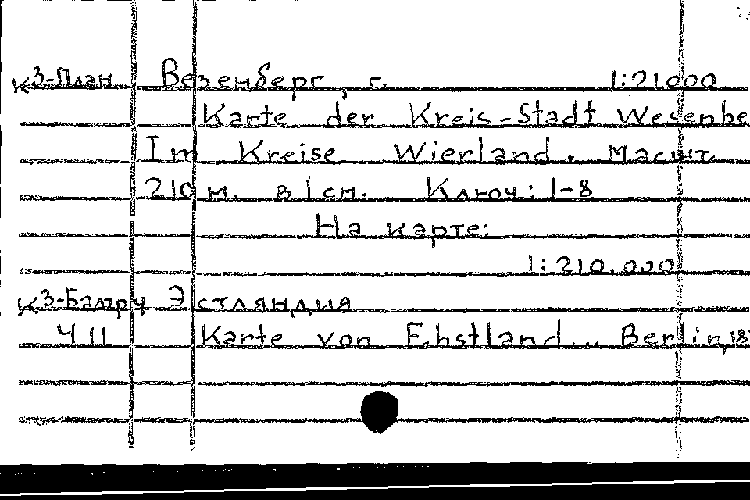 к3-План Везенберг, г. 1:21000
Karte der Kreis-Stadt Wesenbe
Im Kreise Wierland. Масшт.
210 м. в 1 см. Ключ: 1-8
На карте:
1:210.000
к3-Балт Эстляндия
Ч 11 Karte von Ehstland... Berlin, 18